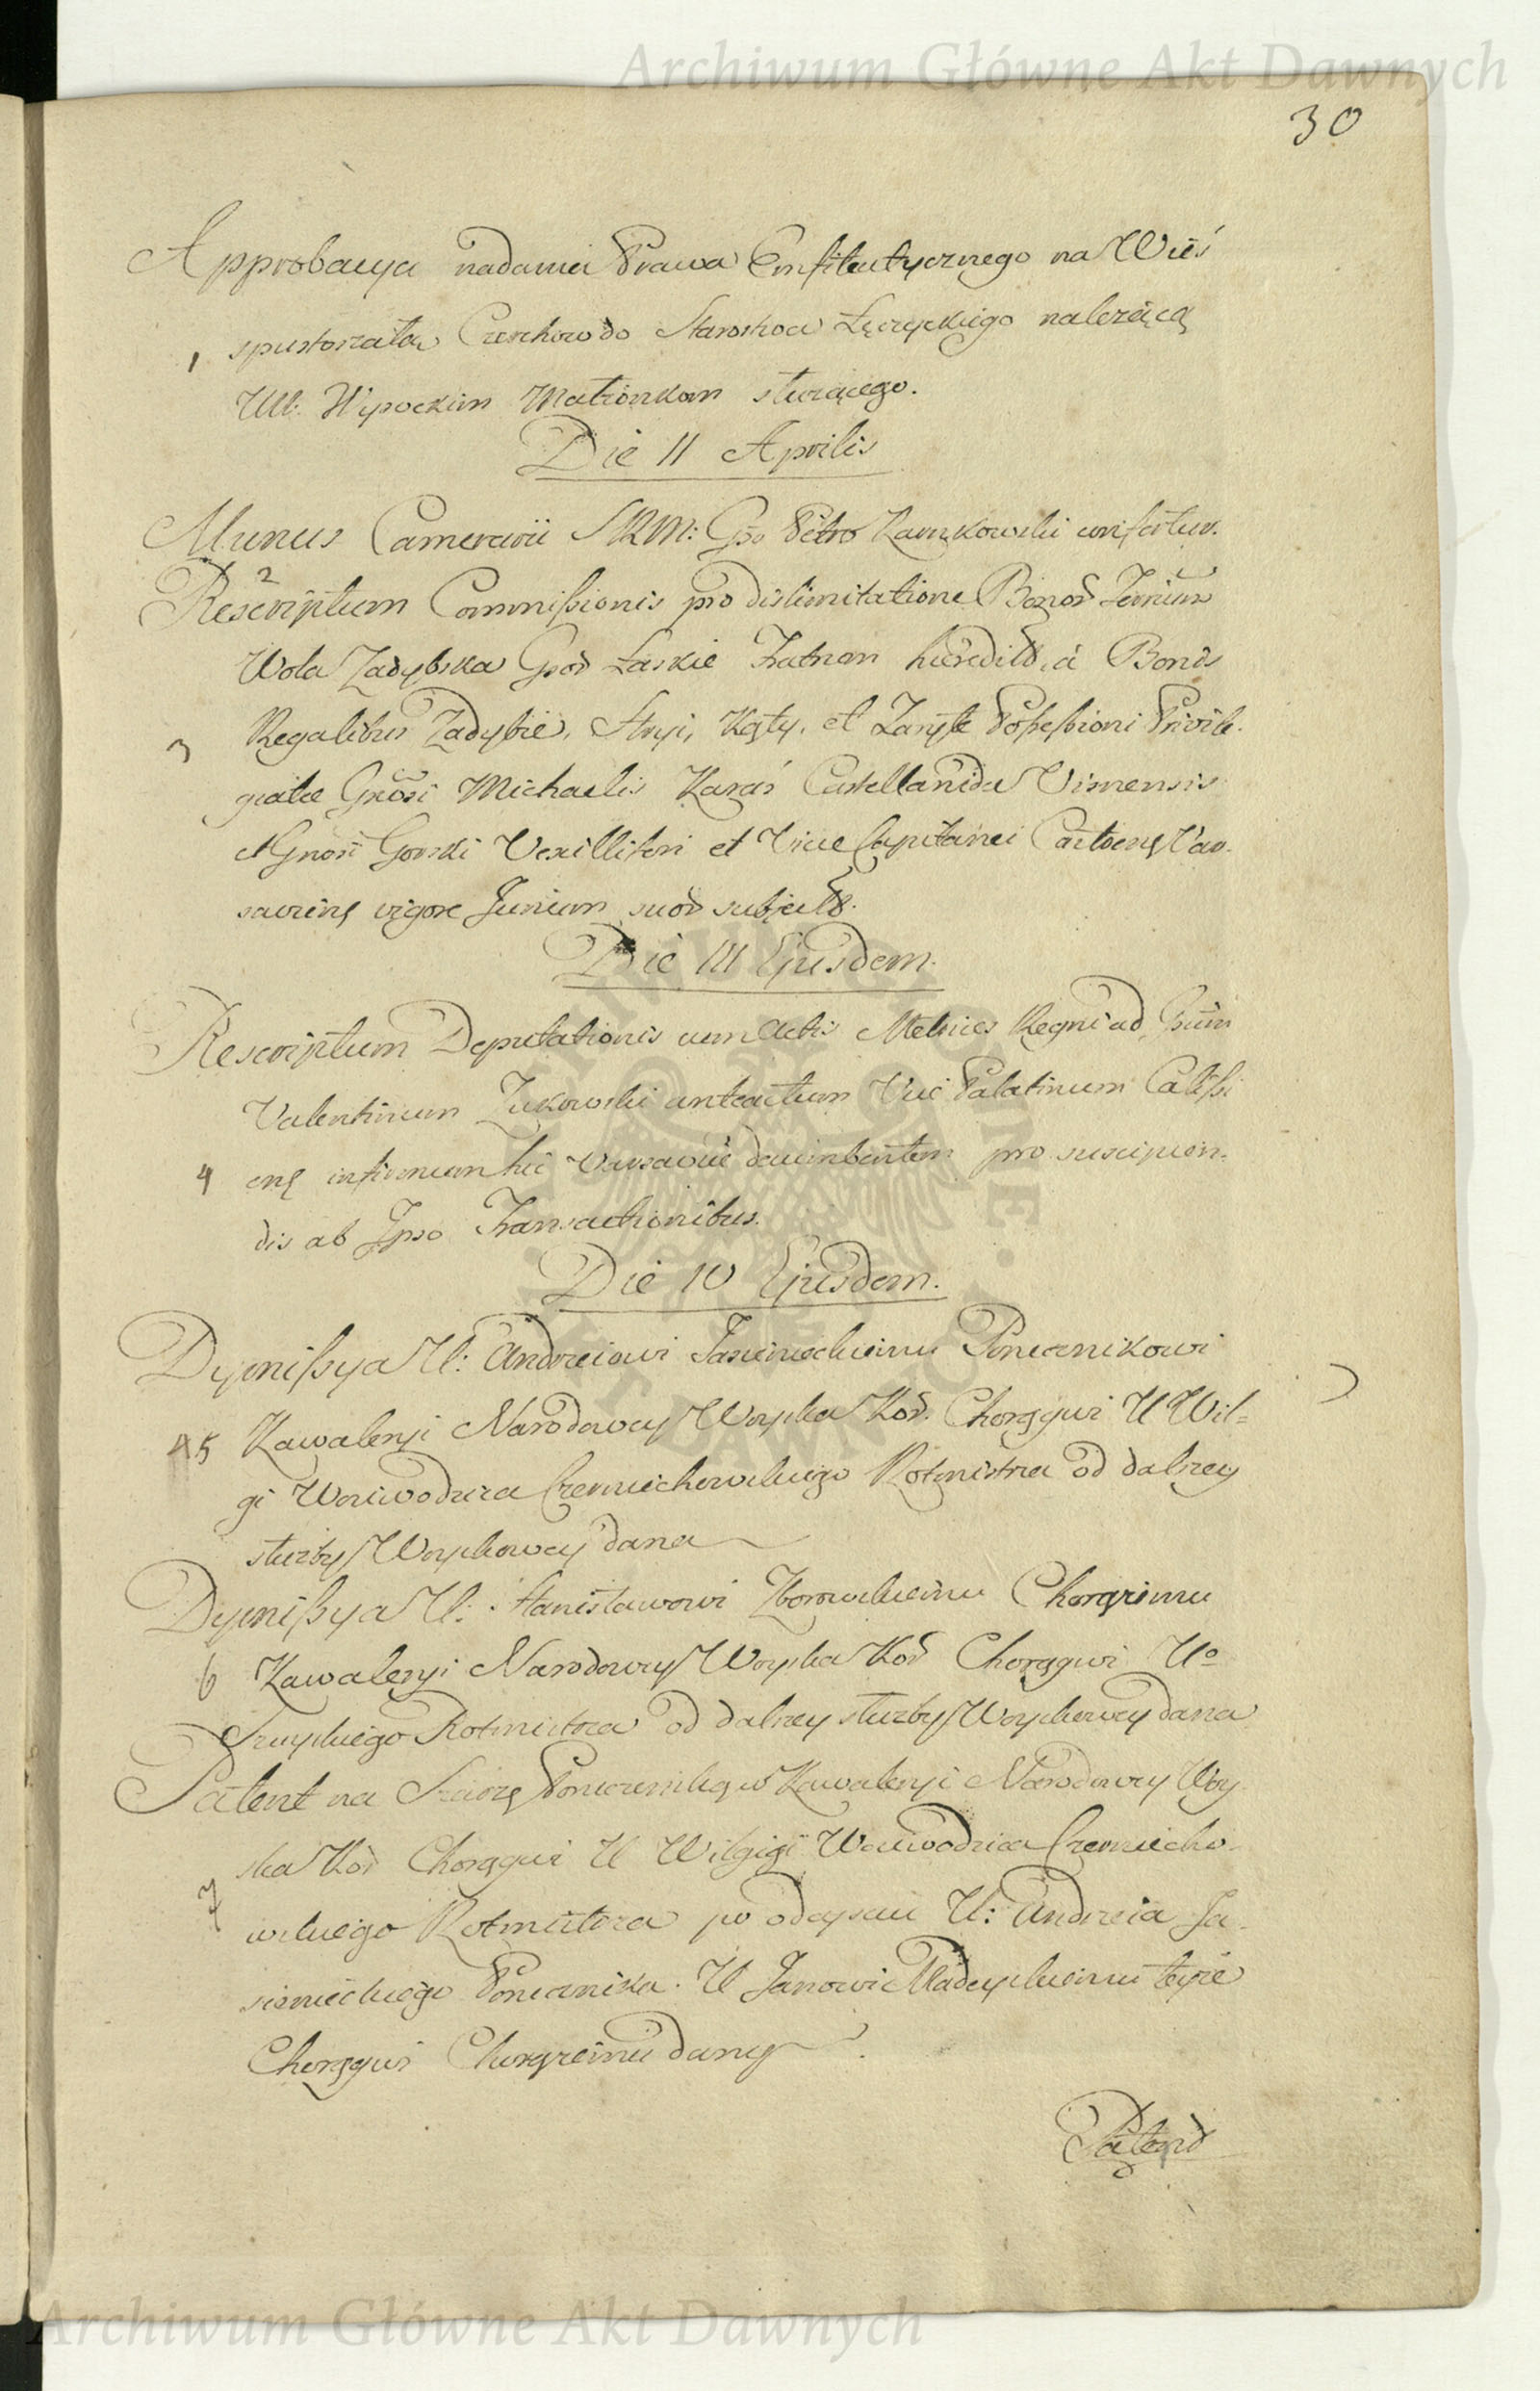 Archiwum Główne Akt Dawnych
30
Approbacya nadania Prawa Emfiteutycznego na Wieś
1 spustoszałą Czerchow do Starostwa Łęczyckiego należącą
Ur: Wysockim Małżonkom służącego.
Die II Aprilis
Munus Camerarii SRM: Gso Petro Karnkowski confertur.
2
Rescriptum Commißionis pro dislimitatione Bonor Terrium
Wola Zadybska Gsor Łaskie Fratrum hæredit, a Bonis
3 Regalibus Zadybie, Stryi, Kąty, et Zaryte Poßeßioni Privile-
giatæ Gnosi Michaelis Karaś Castellanida Visnensis
et Gnosi Gorski Vexilliferi et Vice Capitanei Castrens Var-
saviens vigore Jurium suor subject.
Die III Ejusdem.
Rescriptum Deputationis cum Actis Metrices Regni ad Gsum
Valentinum Zukowski anteactum Vice Palatinum Calißi
4 ens infirmum hic Varsaviæ decumbentem pro suscipien-
dis ab Ipso Transactionibus.
Die IV Ejusdem.
Dymißya U: Andrzeiowi Jasienieckiemu Porucznikowi
5 Kawaleryi Narodowey Woyska Kor. Chorągwi U Wil=
gi Woiewodzica Czerniechowskiego Rotmistrza od dalszey
służby Woyskowey dana
Dymißya U: Stanisławowi Zborowskiemu Chorążemu
6 Kawaleryi Narodowey Woyska Kor Chorągwi Uo
Rotmistrza od dalszey służby Woyskowey dana
Patent na Szarżę Porucznika w Kawaleryi Narodowey Woy-
ska Kor Chorągwi U Wilgigi Woiewodzica Czerniecho-
7 wskiego Rotmistrza po odeysciu U: Andrzeia Ja-
sienieckiego Porucznika. U Janowi Madeyskiemu teyże
Chorągwi Chorążemu dany
Patend
Archiwum Główne Akt Dawnych